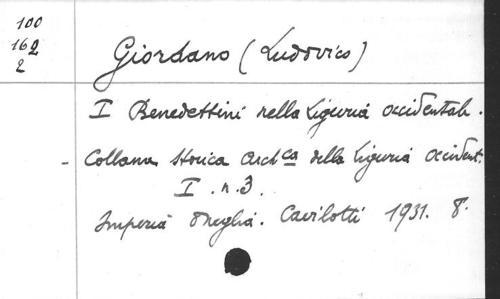 100
162
2
Giordano (Ludovico)
I Benedettini nella Liguria occidentale.
- Collana storica archca della Liguria occident.
I. n. 3.
Imperia Oneglia. Cavilotti 1931. 8°.